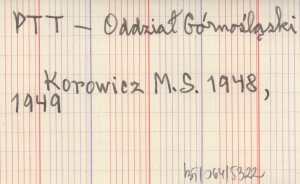 PTT – Oddział Górnośląski
Korowicz M.S. 1948,
1949